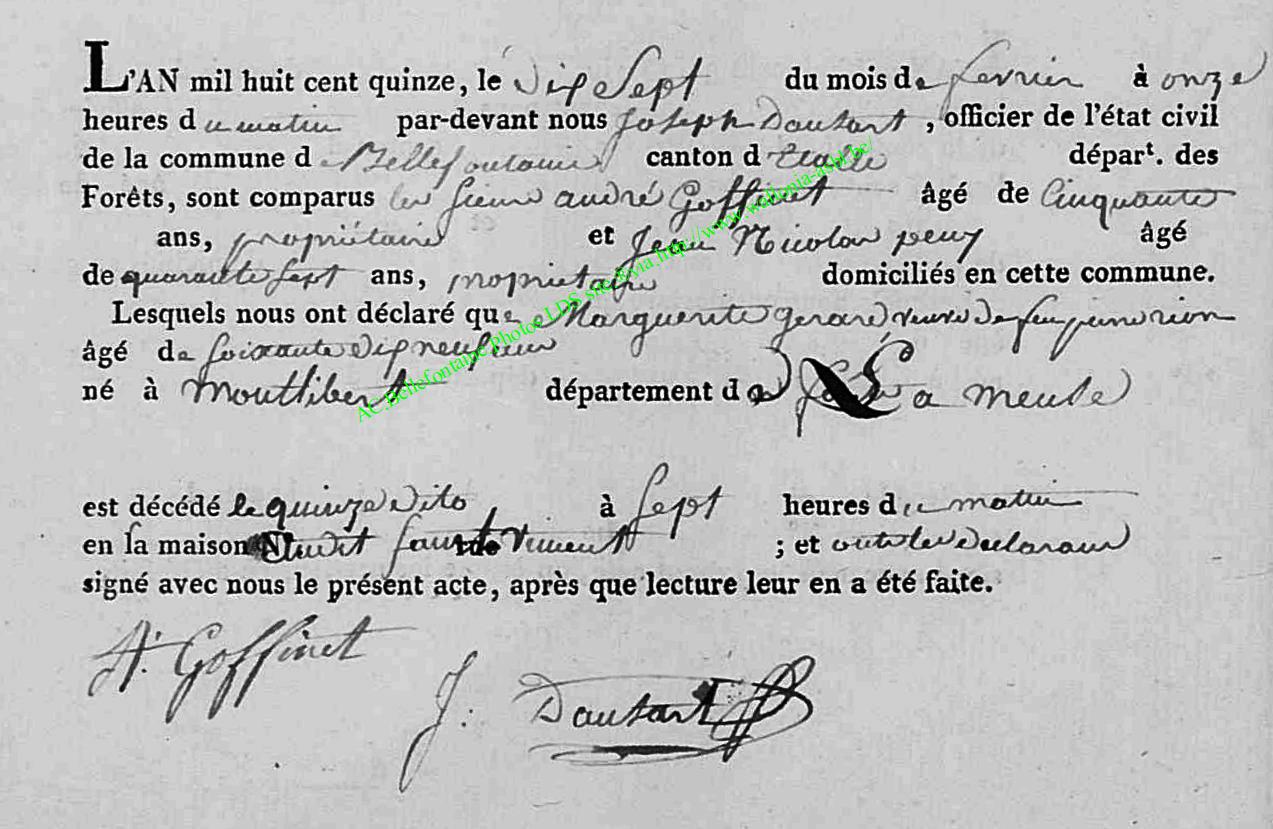 L'AN mil huit cent quinze, le dix Sept du mois de fevrier à onze
heures du matin par-devant nous Joseph Dautart, officier de l'état civil
de la commune d Bellefontaine canton d'Etalle départ. des
Forêts, sont comparus les sieurs andré Goffinet âgé de Cinquante
ans, propriétaire et Jean Nicolas peny âgé
de quarante sept ans, proprietaire domiciliés en cette commune.
Lesquels nous ont déclaré que Marguerite gerard veuve de feu
âgé de soixante dix neuf
né à département de la meuse
est décédé le quinze dito à sept heures du matin
en la maison ; et
signé avec nous le présent acte, après que lecture leur en a été faite.
A. Goffinet
J. Dautart
AC Bellefontaine Photos LDS site &via http://www.wallonia-asbl.be/